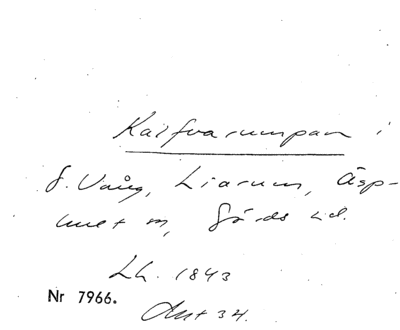 Kalfvarumpan i
S. Vång, Liarum, Äsp-
huet m, Gärds hd.
Lh. 1843
Nr 7966.
Ant 34.